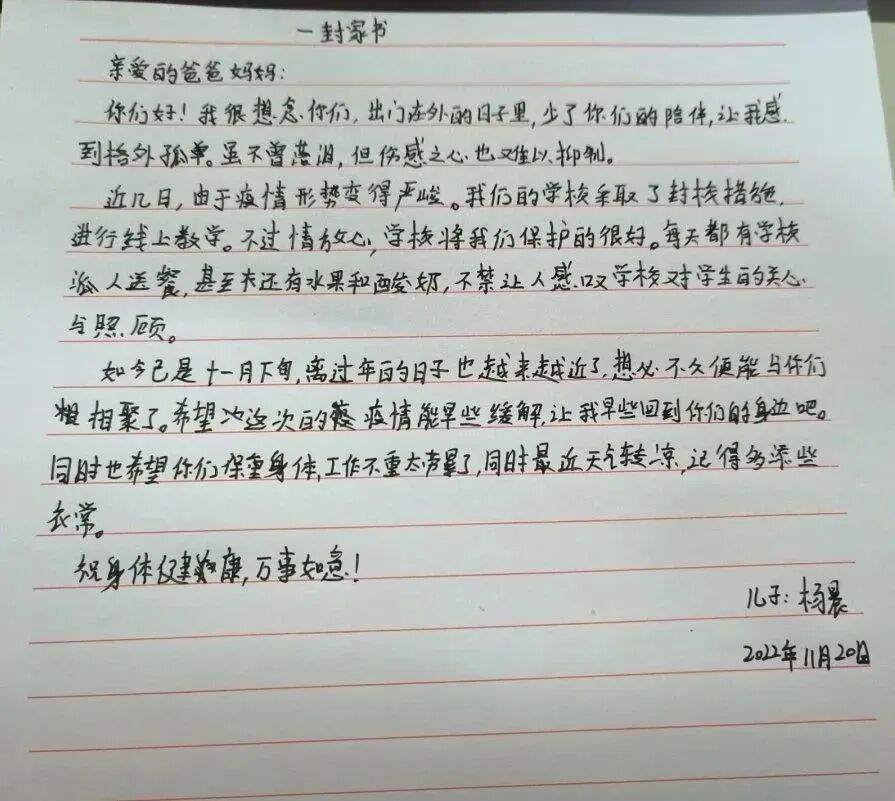 一封家书
亲爱的爸爸妈妈:
你们好!我很想念你们,出门在外的日子里,少了你们的陪伴,让我感
到格外孤单。虽不曾落泪,但伤感之心也难以抑制。
近几日,由于疫情形势变得严峻。我们的学校采取了封校措施,
进行线上教学。不过情放心,学校将我们保护的很好。每天都有学校
派人送餐,甚至还有水果和酸奶,不禁让人感叹学校对学生的关心
与照顾。
如今已是十一月下旬,离过年的日子也越来越近了,想必不久便能与你们
相聚了。希望这次的疫情能早些缓解,让我早些回到你们的身边吧。
同时也希望你们保重身体,工作不重太劳累了,同时最近天气转凉,记得多添些
衣常。
祝身体健康,万事如意!
儿子:杨晨
2022年11月20日